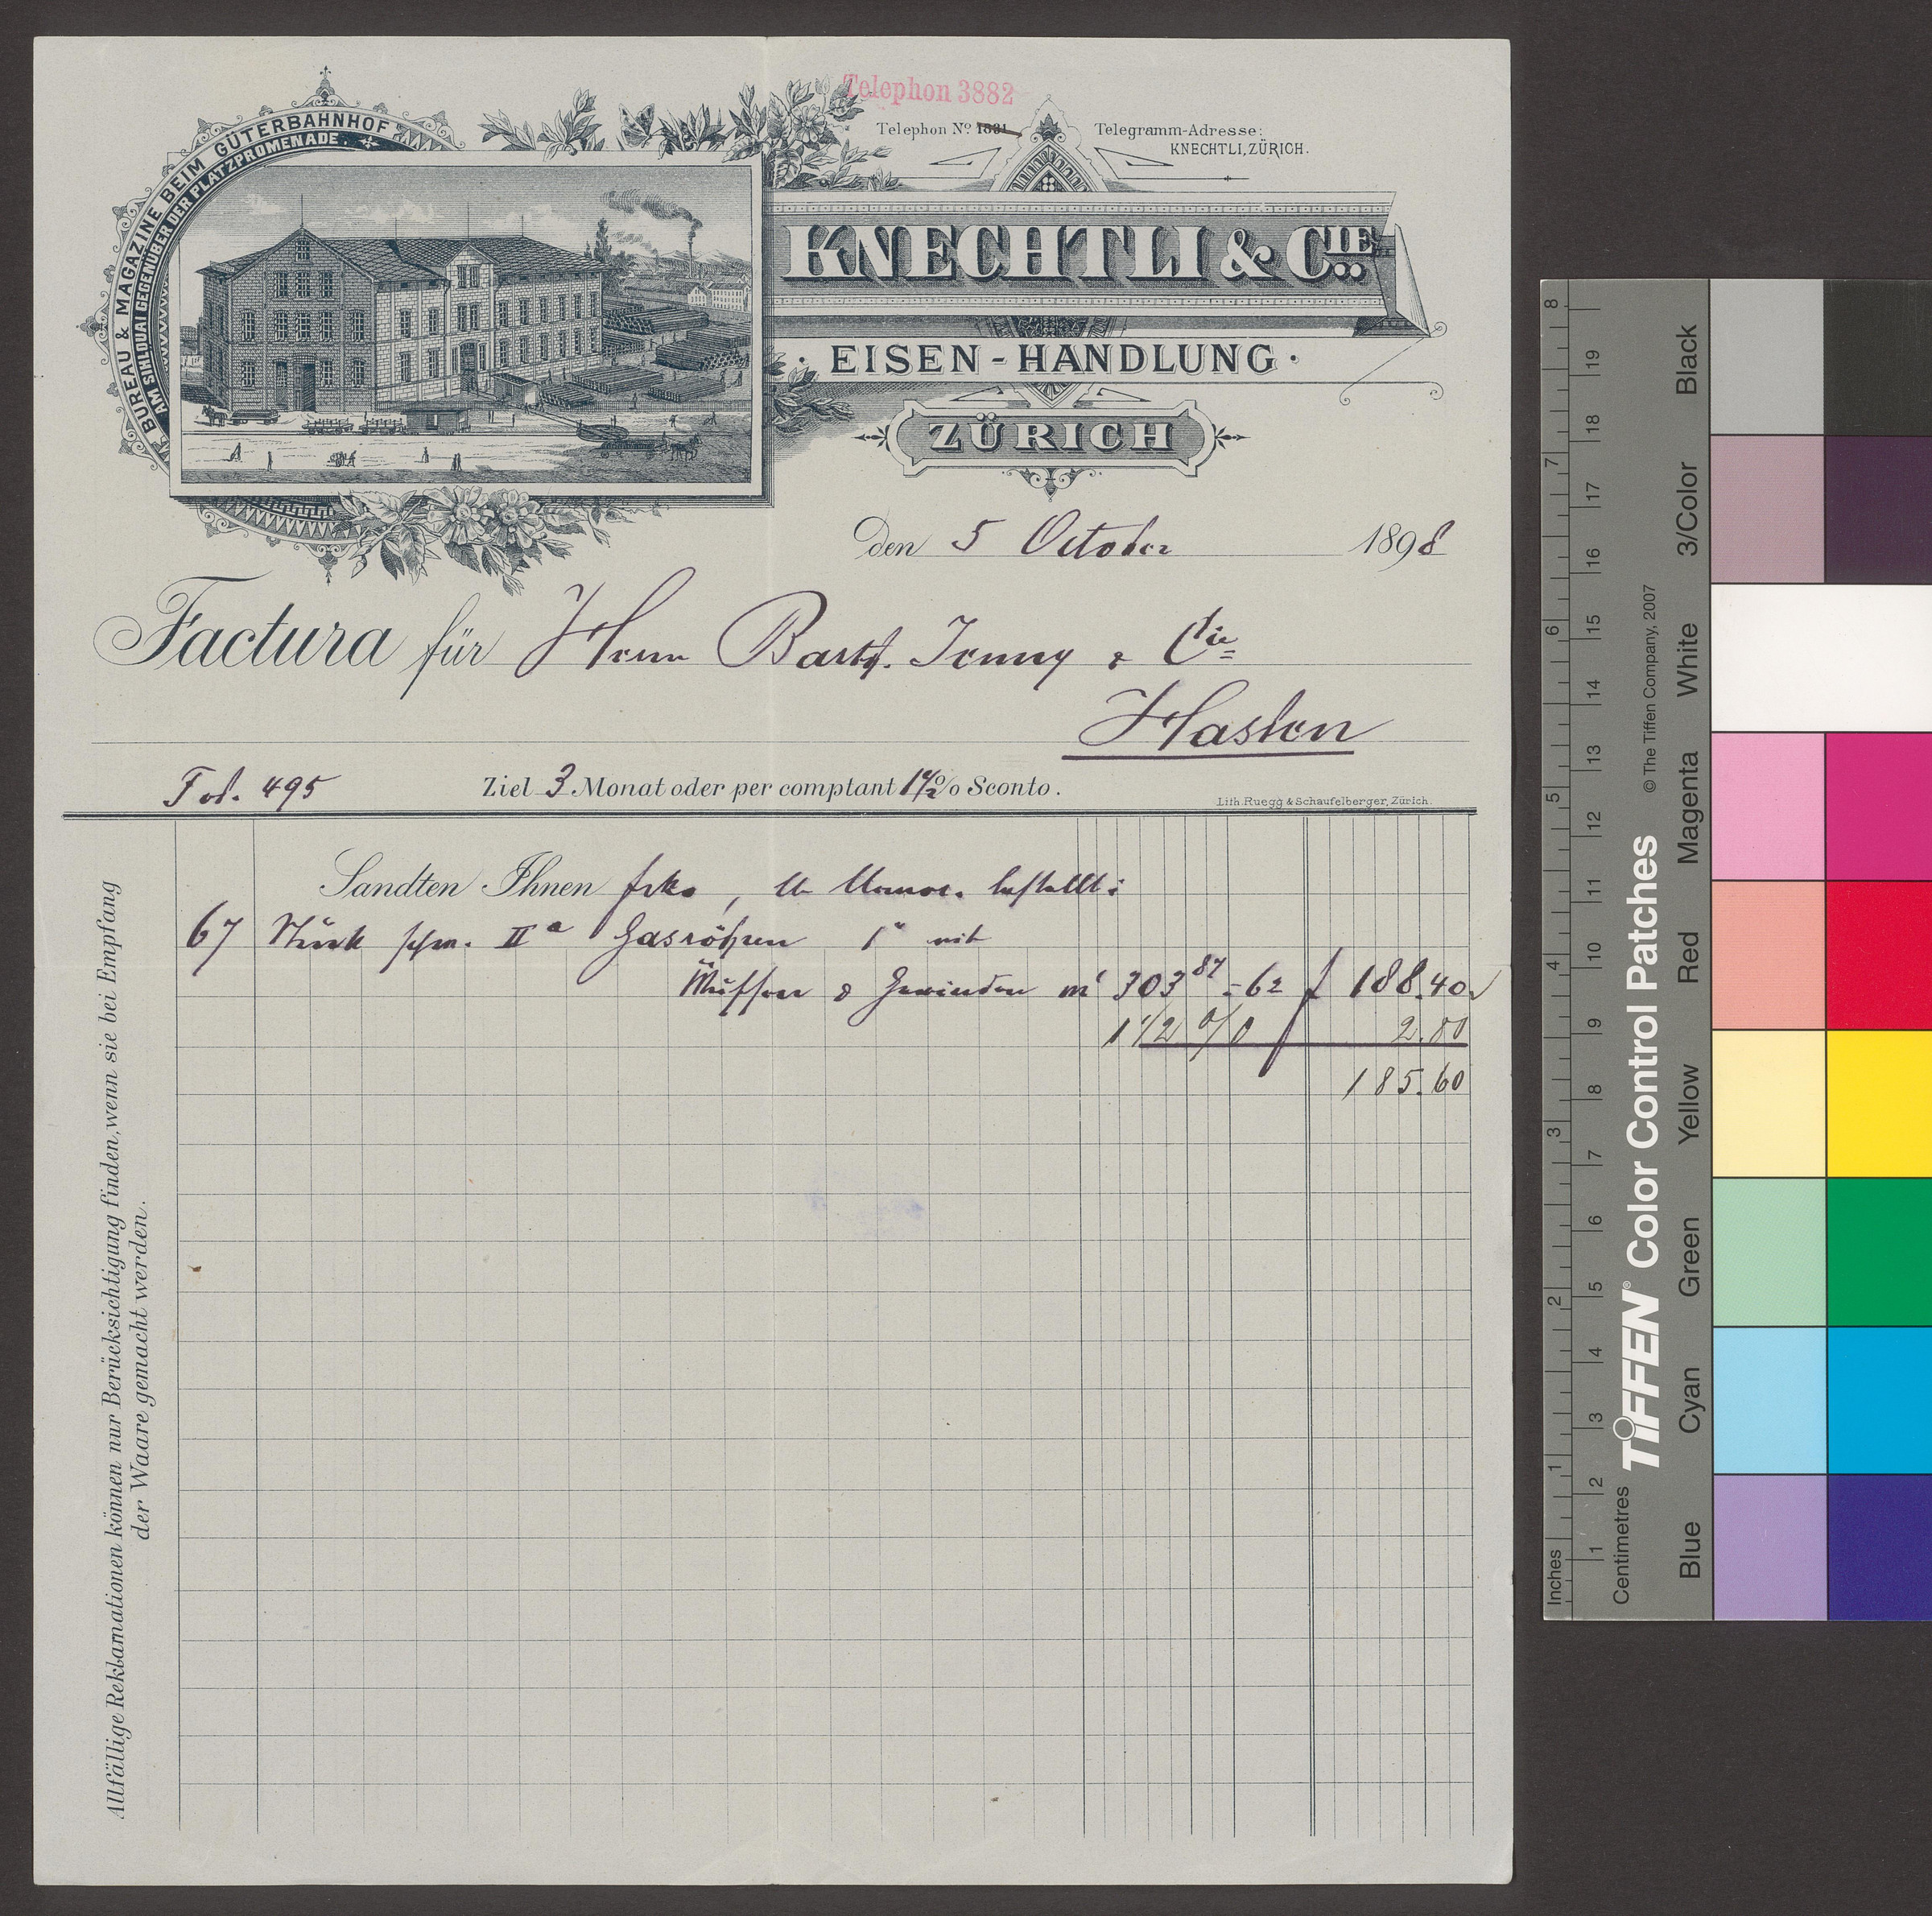 Telephon 3882
Telephon No 1831
Telegramm-Adresse:
KNECHTLI, ZÜRICH.
BUREAU & MAGAZINE BEIM GÜTERBAHNHOF
AM SIHLQUAI GEGENÜBER DER PLATZPROMENADE.
KNECHTLI & CIE
· EISEN-HANDLUNG ·
ZÜRICH
Den 5 October 1898
Factura für Herrn Barth. Jenny & Cie
Haslen
Fol. 495
Ziel 3 Monat oder per comptant 1½% Sconto.
Lith. Ruegg & Schaufelberger, Zürich.
Sandten Ihnen frko, bestellt:
67 Stück schm. IIa Gasröhren 1" mit
Muffen & Gewinden m' 303 87 = 62 f 188.40
1 1/2 0/0 2.80
185.60
Allfällige Reklamationen können nur Berücksichtigung finden, wenn sie bei Empfang
der Waare gemacht werden.
Inches
Centimetres
1 2 3 4 5 6 7 8
1 2 3 4 5 6 7 8 9 10 11 12 13 14 15 16 17 18 19
TIFFEN® Color Control Patches
© The Tiffen Company, 2007
Blue
Cyan
Green
Yellow
Red
Magenta
White
3/Color
Black